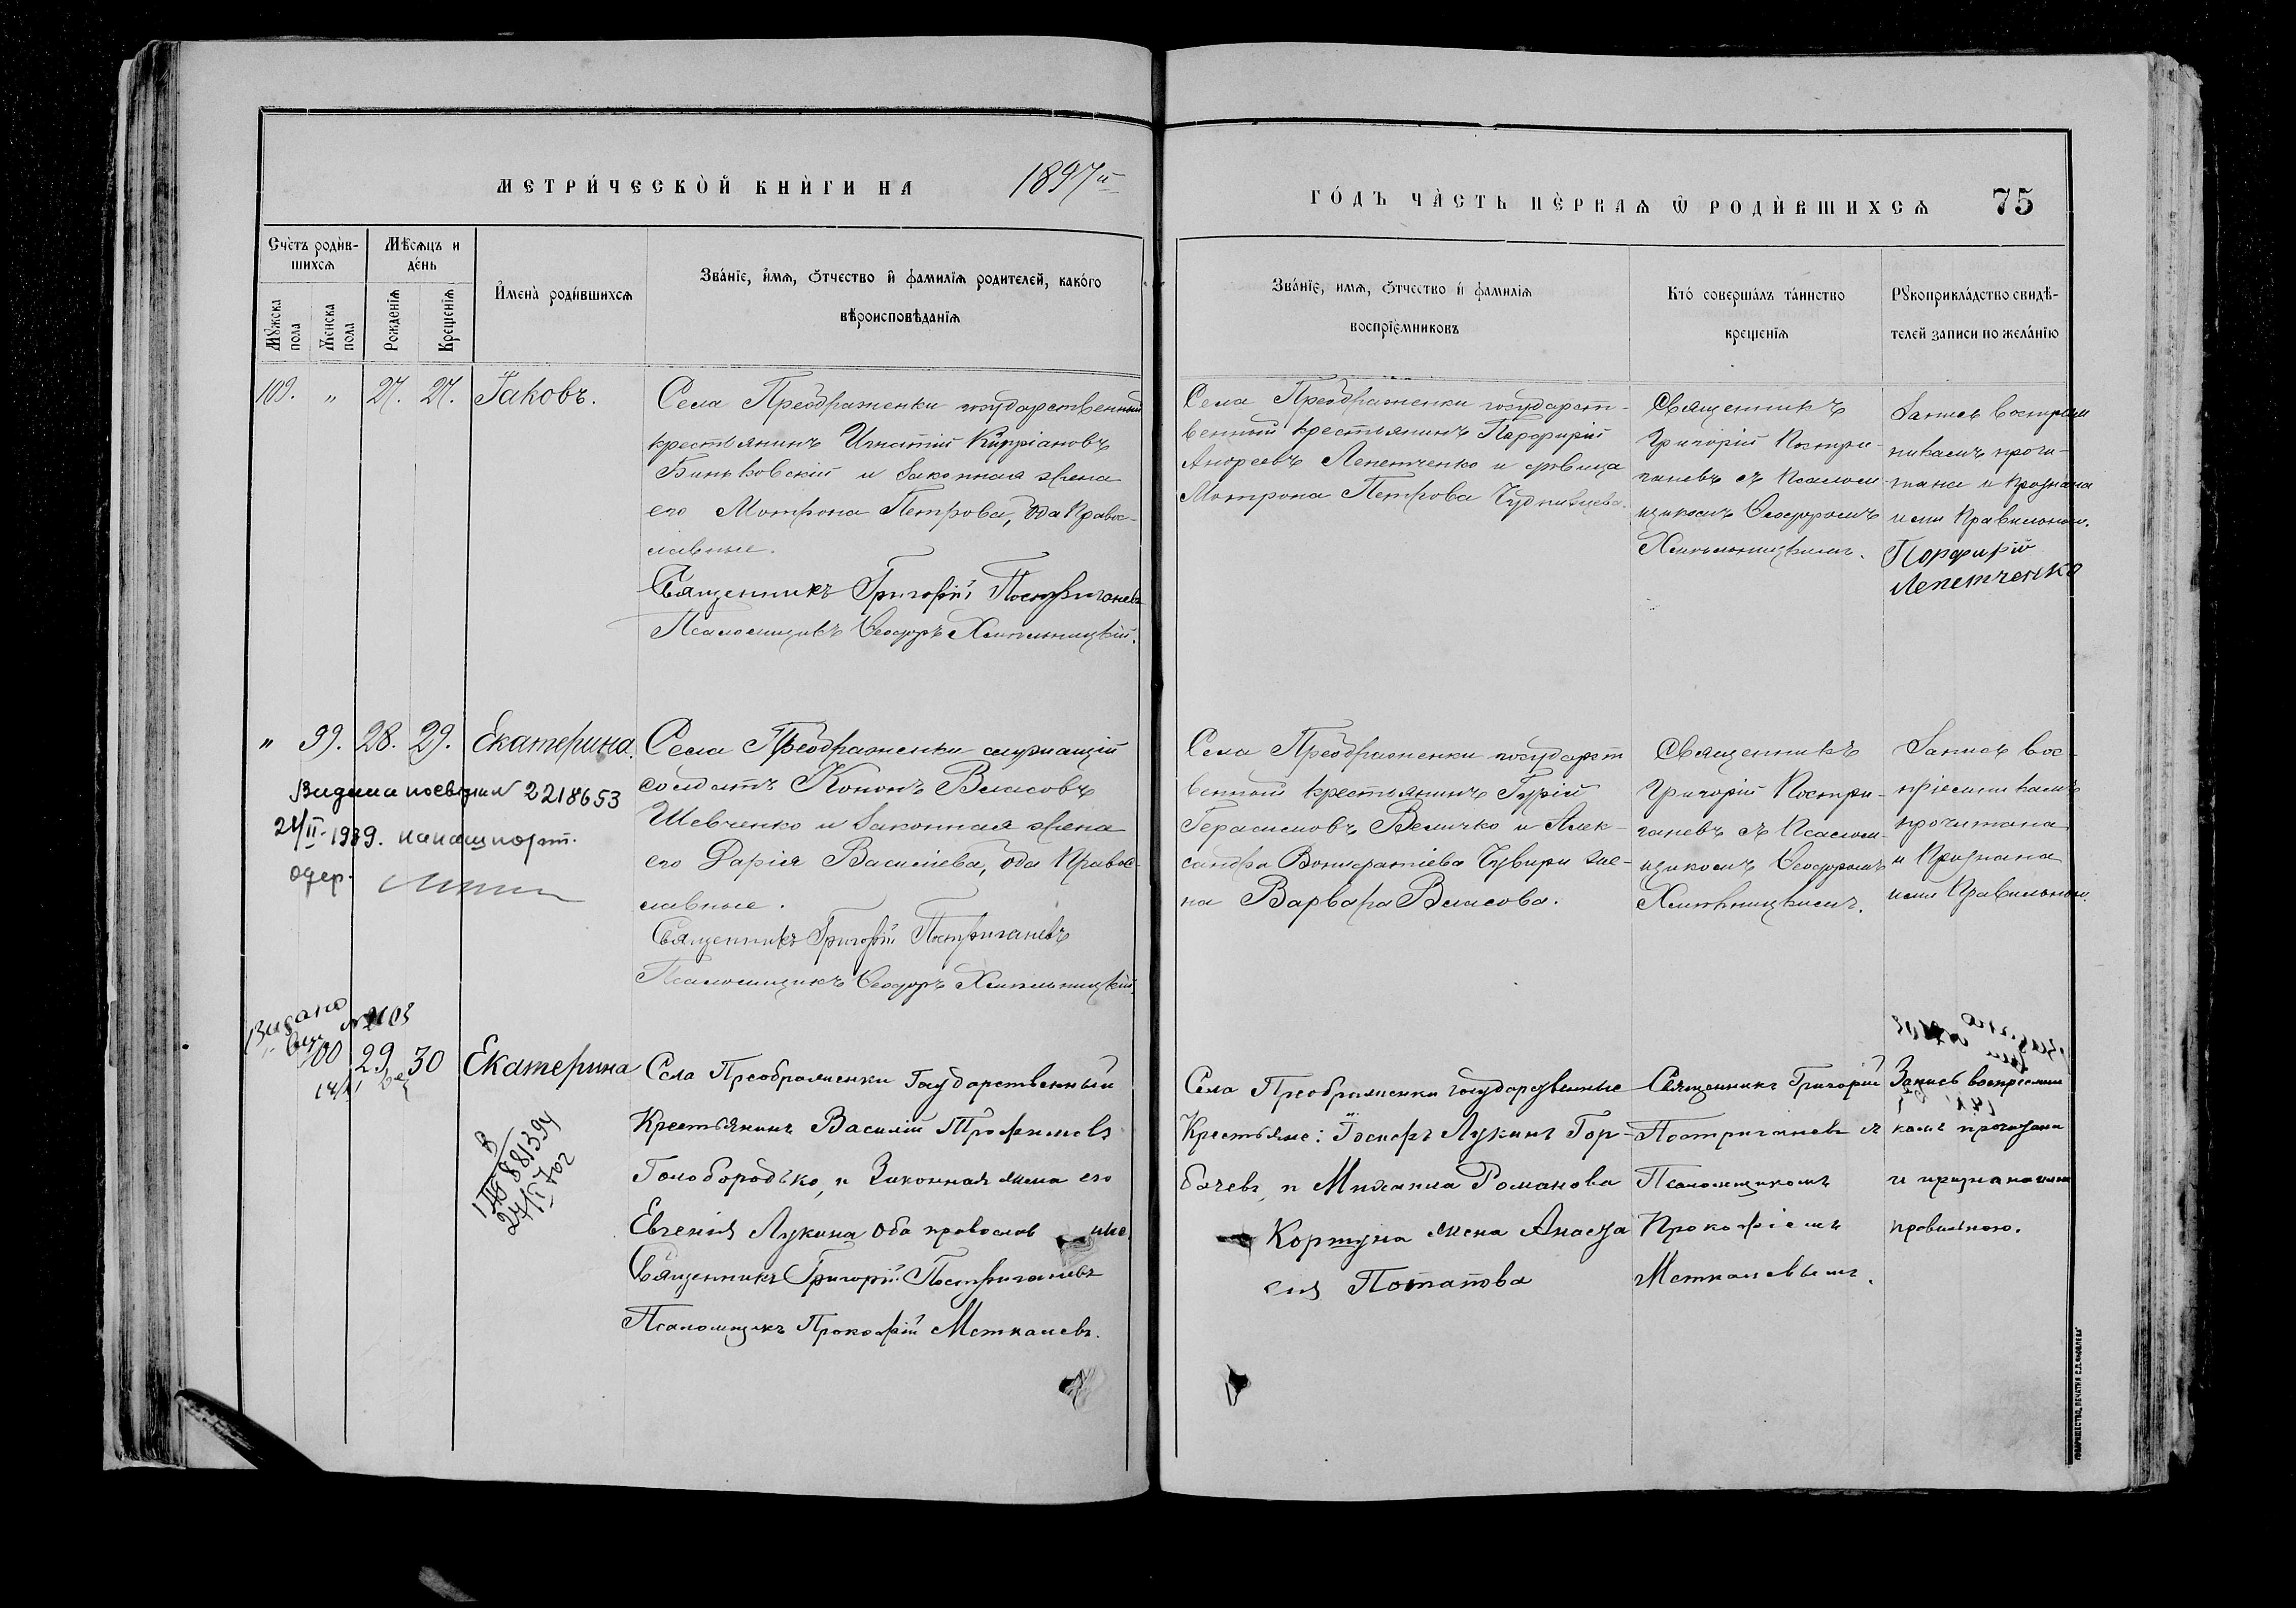 МЕТРИ́ЧЕСКО̀Й КНЍГИ НА 1897й
ГО́ДЪ ЧА̀СТЬ ПЀРВАѦ Ѽ РОДЍВШИХСѦ 75
Счѐтъ родѝв-
шихсѧ
Мѣ́сѧцъ и
де́нь
Мꙋ́жска
пола
Же́нска
пола
Рожде́нїѧ
Креще́нїѧ
И҆мена̀ роди́вшихсѧ
Зва́нїе, и҆́мѧ, ѻ҆́тчество и҆ фами́лїѧ роди́телей, како́го
вѣроисповѣ́данїѧ
Зва́нїе, имѧ, ѻ҆́тчество и҆ фами́лїѧ
воспрїе́мниковъ
Кто́ соверша́лъ та́инство
креще́нїѧ
Рꙋкоприкла́дство свидѣ́-
телей записи по жела́нїю
109. „ 27. 27. Іаковъ.
Села Преображенки государственный
крестьянинъ Игнатій Кипріановъ
Биньковскій и законная жена
его Мотрона Петрова, оба Правос-
лавные.
Священникъ Григорій Постригачевъ
Псаломщикъ Ѳеодоръ Хмельницкій.
Села Преображенки государст-
венный крестьянинъ Парфирій
Андреевъ Лепетченко и
Мотрона Петрова
Священникъ
Григорій Постри-
гачевъ съ Псалом-
щикомъ Ѳеодоромъ
Хмельницкимъ.
Запись воспріем
никамъ прочи-
тана и признана
ими Правильною.
Порфирій
Лепетченко
„ 99. 28. 29. Екатерина.
Села Преображенки служащій
солдатъ Кононъ Власовъ
Шевченко и законная жена
его Дарія Василіева, оба Правос-
лавные.
Священникъ Григорій Постригачевъ
Псаломщикъ Ѳеодоръ Хмельницкій.
Села Преображенки государст
венный крестьянинъ Гурій
Герасимовъ Величко и Алек-
сандра Вонифатіева же-
на Варвара Власова.
Священникъ
Григорій Постри-
гачевъ съ Псалом-
щикомъ Ѳеодоромъ
Хмельницкимъ.
Запись вос-
пріемникамъ
прочитана
и Признана
ими Правильною.
№ 2218653
21/II-1939. на пашпорт.
одер.
Видано
№ 2103
„ 100 29 30 Екатерина
Села Преображенки Государственный
Крестьянинъ Василій Трофимовъ
Голобородько, и Законная жена его
Евгенія Лукина оба православные.
Священникъ Григорій Постригачевъ
Псаломщикъ Прокофій Меткалевъ.
Села Преображенки государственные
Крестьяне: Іосифъ Лукинъ Гор-
бачевъ, и Романова
Кортуна жена Анаста
сія Потапова
Священникъ Григорій
Постригачевъ съ
Псаломщикомъ
Прокофіемъ
Меткалевымъ.
Запись воспріемни
камъ прочитана
и признана ими
правильною.
881394